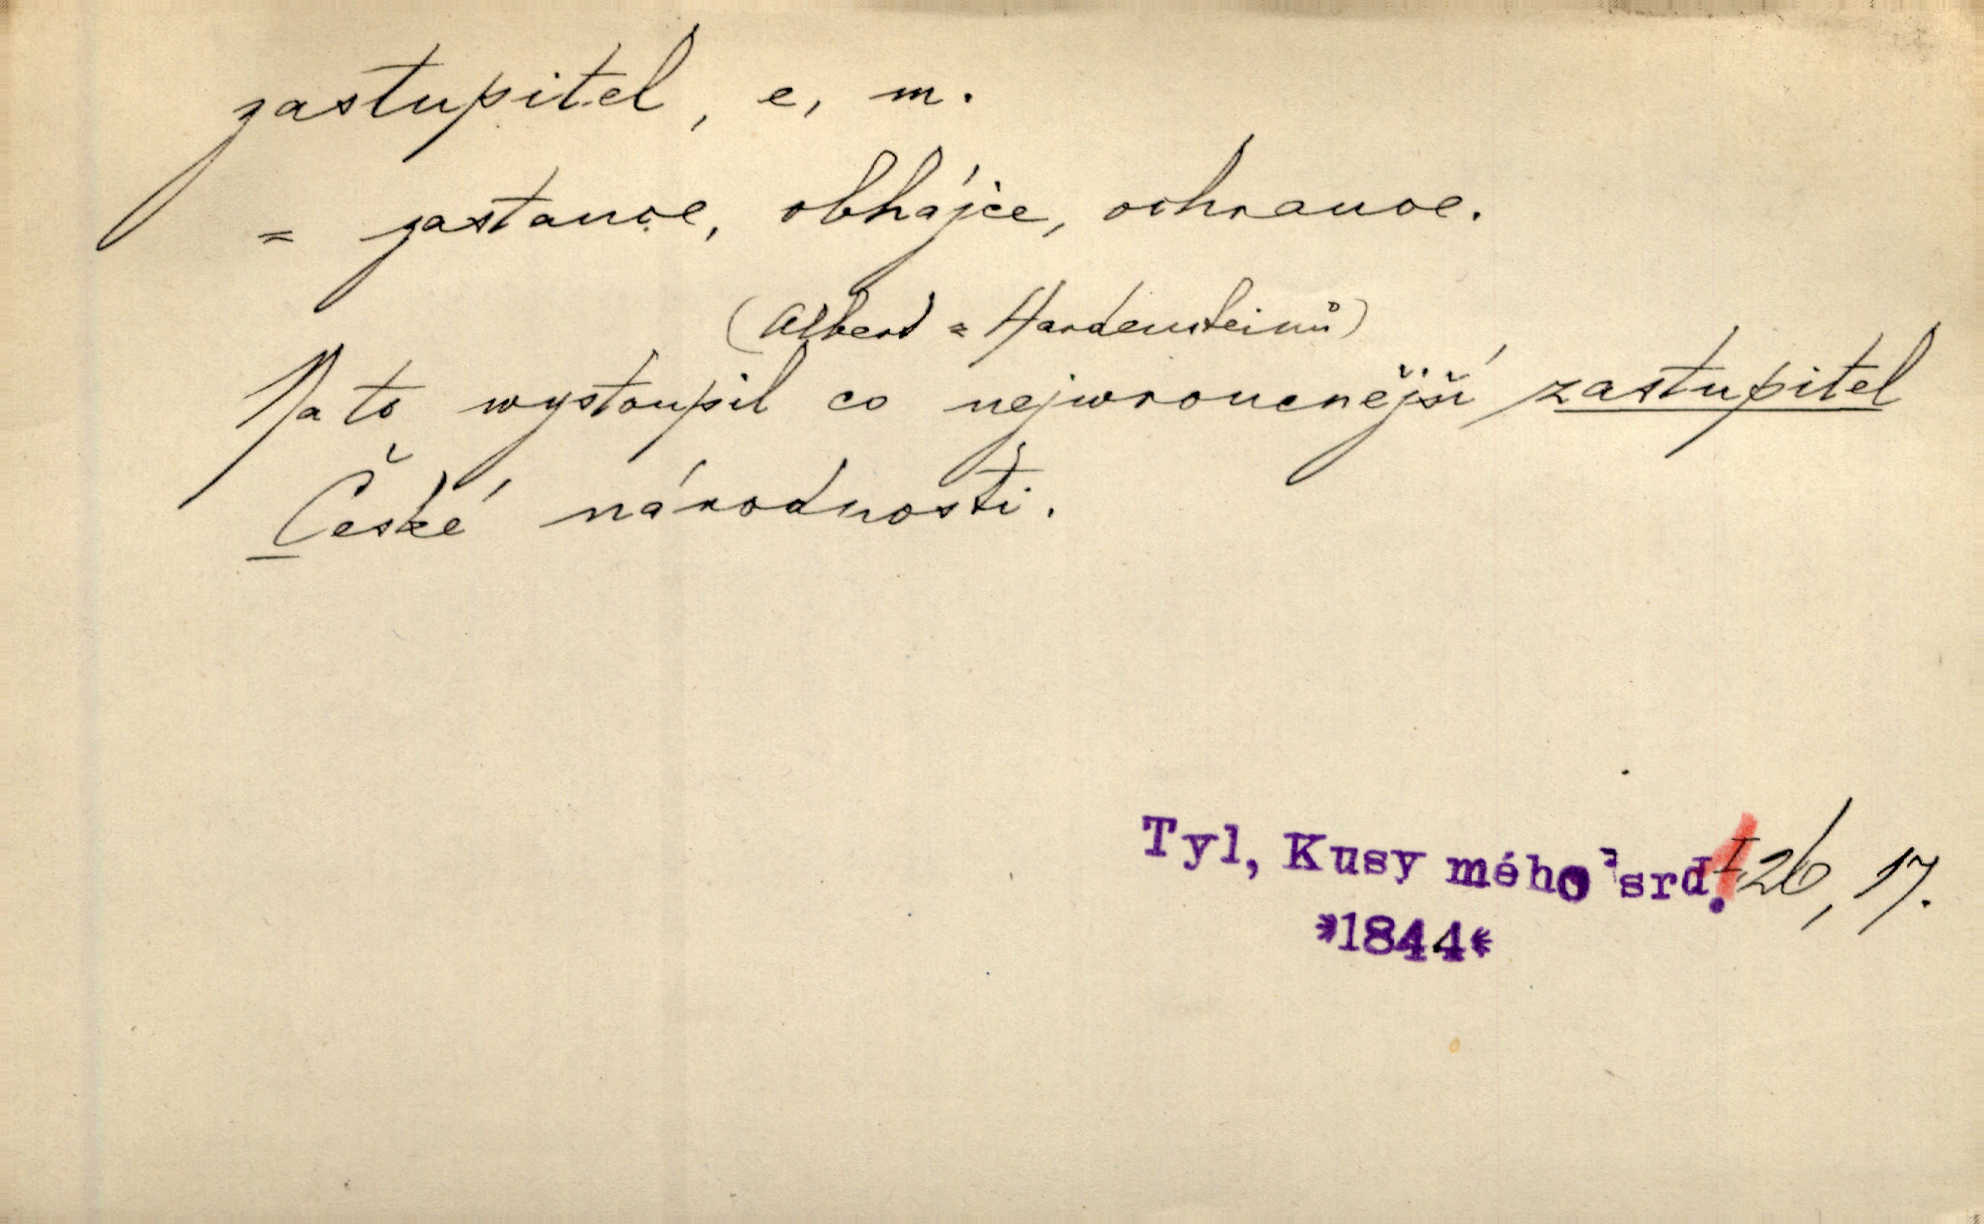 zastupitel, e, m.
= zastance, obhájce, ochrance.
(Albert = Hardensteinů)
Na to wystoupil co nejwroucnější zastupitel
České národnosti.
Tyl, Kusy mého srd. I 26, 17.
*1844*